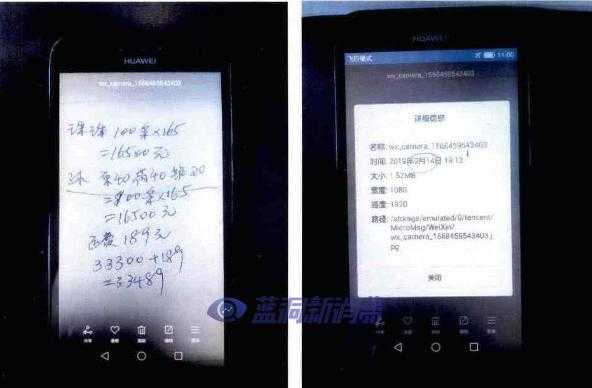 HUAWEI
wx_camera_1568459543403
100条×165
=16500元
=100条×165
=16500元
189元
33300+189
=33489
HUAWEI
飞行模式
11:00
wx_camera_1568459543403
详细信息
名称: wx_camera_1568459543403
时间: 2019年9月14日 19:12
大小: 1.52MB
宽度: 1080
高度: 1920
路径: /storage/emulated/0/tencent/
MicroMsg/WeiXin/
wx_camera_1568459543403.j
pg
关闭
蓝洞新消费